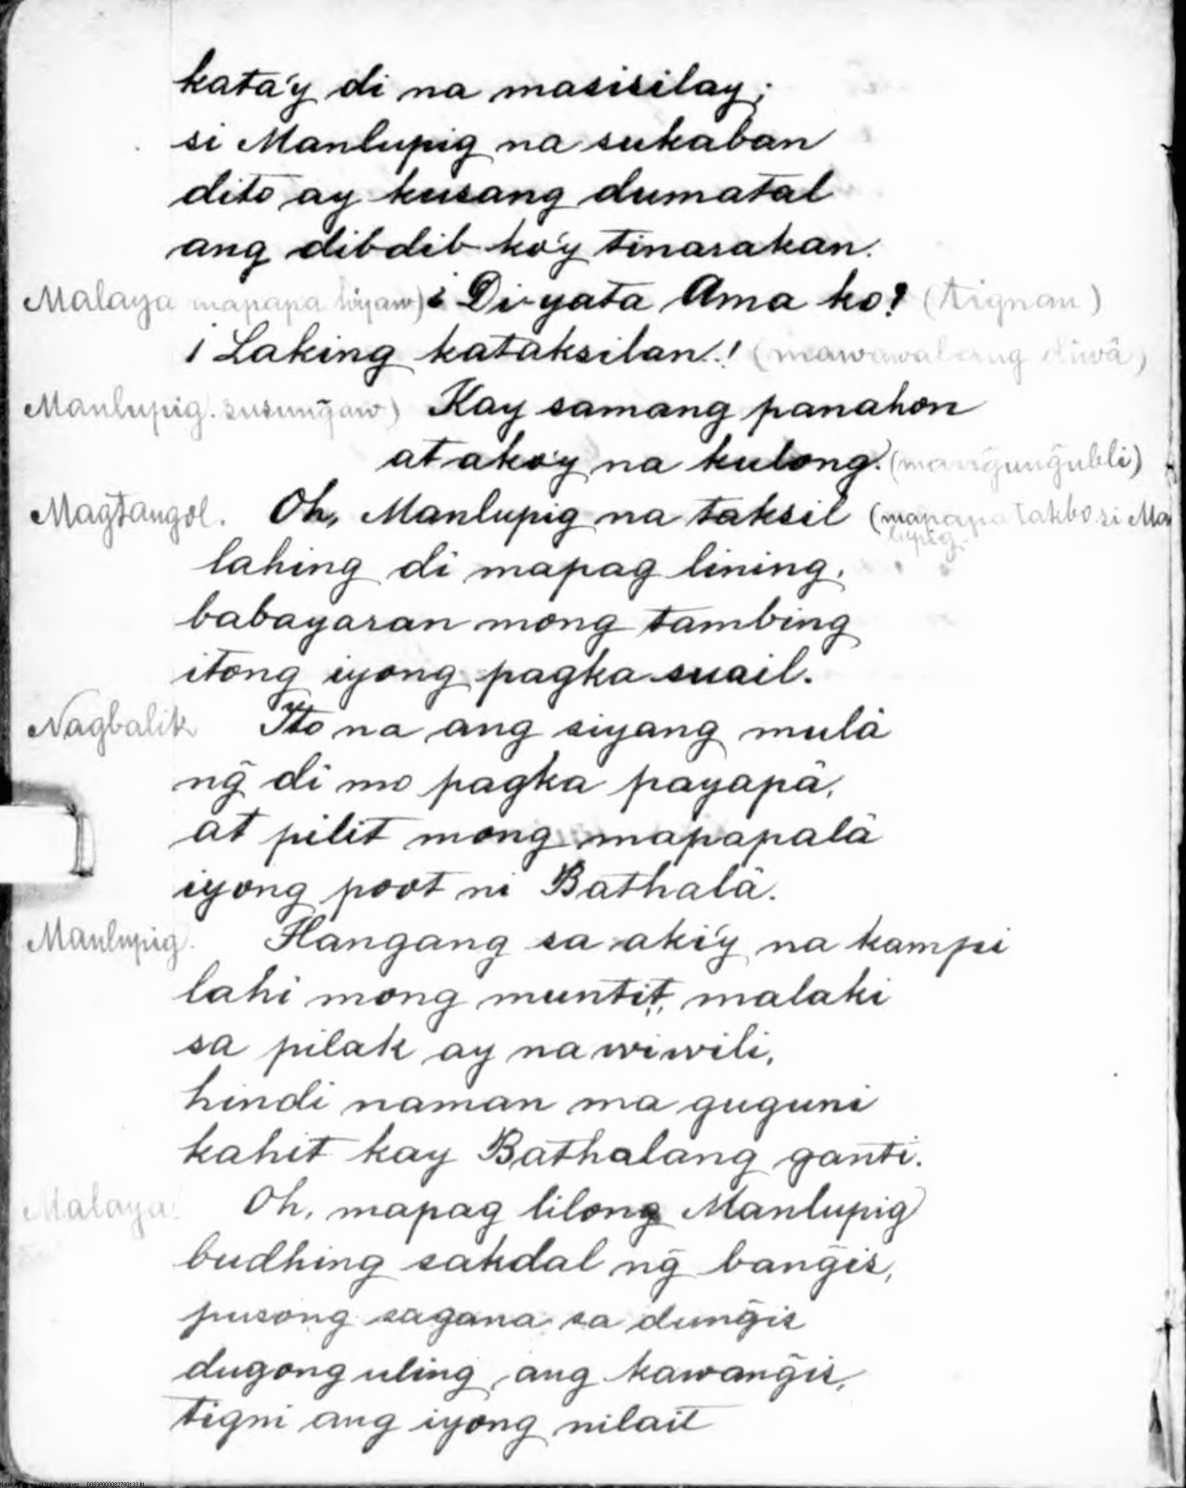 kata'y di na masisilay;
si Manlupig na sukaban
dito ay kusang dumatal
ang dibdib ko'y tinarakan.
Malaya mapapa hiyaw) ¿Di-yata Ama ko? (tignan)
¡Laking kataksilan! (mawawalang diwâ)
Manlupig. susung̃aw) Kay samang panahon
at ako'y na kulong. (mang̃ung̃ubli)
Magtangol. Oh, Manlupig na taksil (mapapa takbo si Man
lupig.
lahing di mapag lining,
babayaran mong tambing
itong iyong pagka suail.
Nagbalik Ito na ang siyang mulâ
ng̃ di mo pagka payapâ,
at pilit mong mapapalâ
iyong poot ni Bathalâ.
Manlupig. Hangang sa aki'y na kampi
lahi mong muntit, malaki
sa pilak ay na wiwili,
hindi naman ma guguni
kahit kay Bathalang ganti.
Malaya. Oh, mapag lilong Manlupig
budhing sakdal ng̃ bang̃is,
pusong sagana sa dung̃is
dugong uling ang kawang̃is,
tigni ang iyong nilait